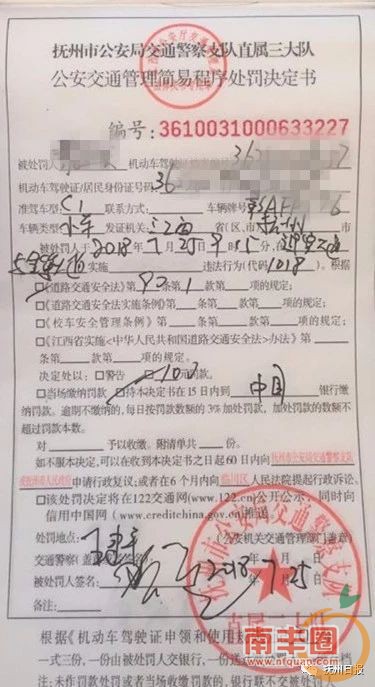 抚州市公安局交通警察支队直属三大队
公安交通管理简易程序处罚决定书
编号:3610031000633227
被处罚人 机动车驾驶证档案编号36
机动车驾驶证/居民身份证号码36
准驾车型 C1 联系方式: 车辆牌号
车辆类型 小车 发证机关:江西 省(区、市)抚州
被处罚人于2018年7月25日9时 分,在迎宾大道
实施 违法行为(代码1018)。根据
□《道路交通安全法》第90条第1款第 项的规定;
□《道路交通安全法实施条例》第 条第 款第 项的规定;
□《校车安全管理条例》第 条第 款第 项的规定;
□《江西省实施<中华人民共和国道路交通安全法>办法》第
条第 款第 项的规定。
决定处以:□警告 100
□当场缴纳罚款 □持本决定书在15日内到 中国 银行缴
纳罚款。逾期不缴纳的,每日按罚款数额的3%加处罚款,加处罚款的数额不
超过罚款本数。
对 予以收缴。附清单共 份。
如不服本决定,可以在收到本决定书之日起60日内向抚州市公安局交通警察支队
或抚州市人民政府申请行政复议;或者在6个月内向临川区人民法院提起行政诉讼。
□该处罚决定将在122交通网(www.122.cn)公开公示,同时向
信用中国网(www.creditchina.gov.cn)推送
处罚地点: (公安机关交通管理部门盖章)
交通警察(盖 年 月 日
被处罚人签名: 2018 7 25
备注:
抚州市公安局交通警察支队
直属三大队
根据《机动车驾驶证申领和使用规
一式三份,一份由被处罚人交银行,一份
档。未作罚款处罚或者当场收缴罚款的,银行联不交被处罚人
南丰圈
www.nfquan.com
抚州日报